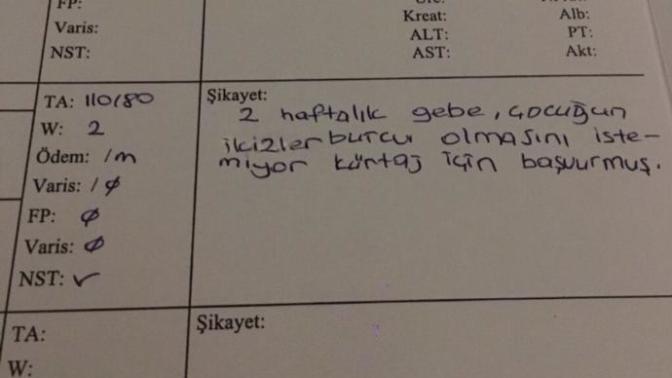 FP:
Varis:
NST:
Kreat: Alb:
ALT: PT:
AST: Akt:
TA: 110/80
W: 2
Ödem: /m
Varis: /ø
FP: ø
Varis: ø
NST: ✓
Şikayet:
2 haftalık gebe, çocuğun
ikizler burcu olmasını iste-
miyor kürtaj için başvurmuş.
TA:
W:
Şikayet: